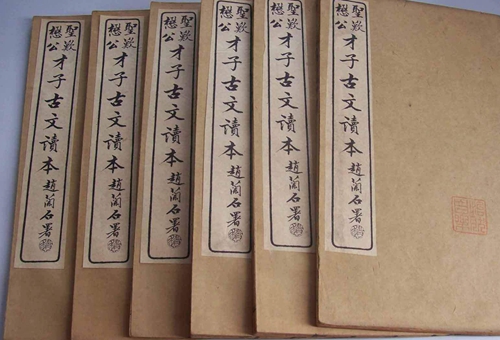 聖歎
懋公
才子古文讀本
趙蘭石署
聖歎
懋公
才子古文讀本
趙蘭石署
聖歎
懋公
才子古文讀本
趙蘭石署
聖歎
懋公
才子古文讀本
趙蘭石署
聖歎
懋公
才子古文讀本
趙蘭石署
聖歎
懋公
才子古文讀本
趙蘭石署